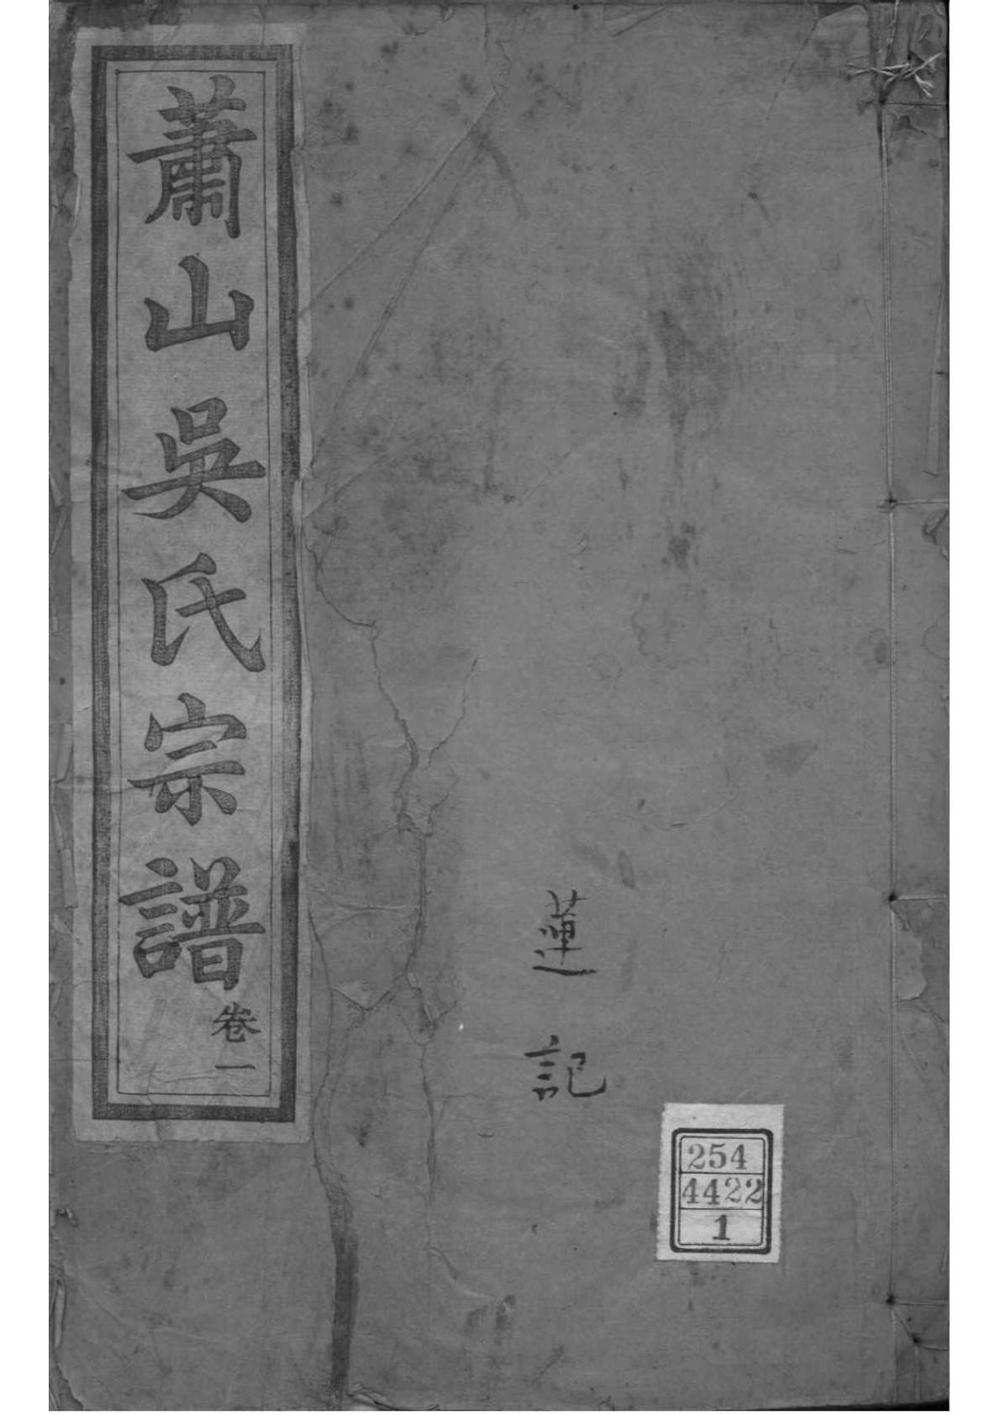 蕭山吳氏宗譜
卷一
蓮記
254
4422
1